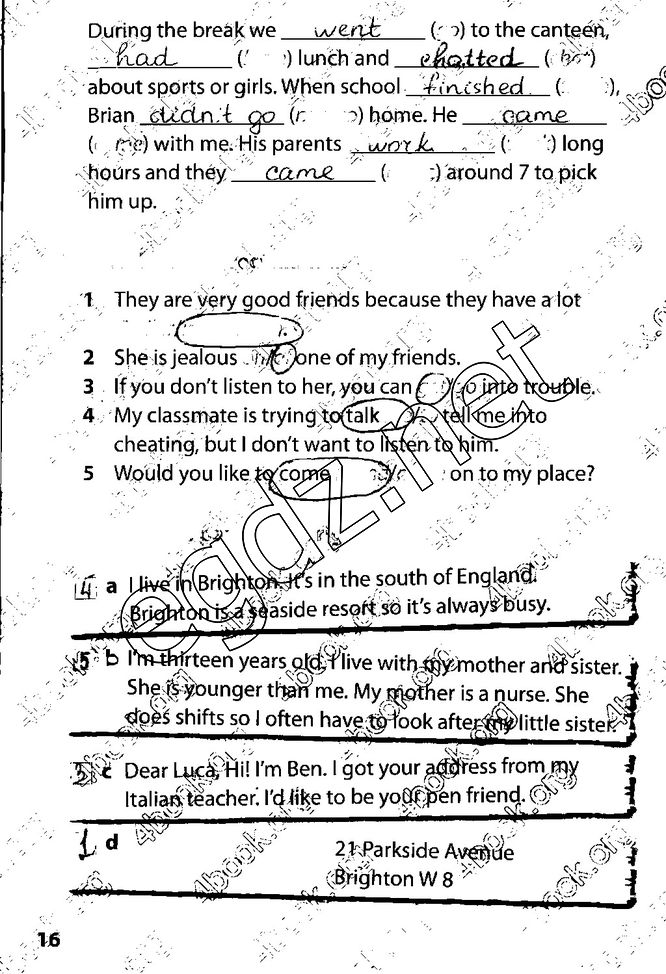 During the break we went ( ) to the canteen,
had ( ) lunch and chatted ( )
about sports or girls. When school finished ( ),
Brian didn't go ( ) home. He came
( ) with me. His parents work ( ) long
hours and they came ( ) around 7 to pick
him up.
1 They are very good friends because they have a lot
2 She is jealous one of my friends.
3 If you don't listen to her, you can go into trouble.
4 My classmate is trying to talk tell me into
cheating, but I don't want to listen to him.
5 Would you like to come on to my place?
4 a I live in Brighton. It's in the south of England.
Brighton is a seaside resort so it's always busy.
5 b I'm thirteen years old. I live with my mother and sister.
She is younger than me. My mother is a nurse. She
does shifts so I often have to look after my little sister.
3 c Dear Luca, Hi! I'm Ben. I got your address from my
Italian teacher. I'd like to be your pen friend.
1 d
21 Parkside Avenue
Brighton W 8
16
egdz.net
4book.org